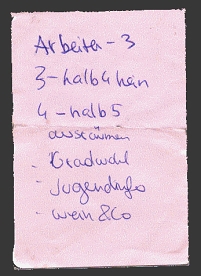 Arbeiten - 3
3 - halb 4 hein
4 - halb 5
ausräumen
- Gradwohl
- Jugendinfo
- wein & Co